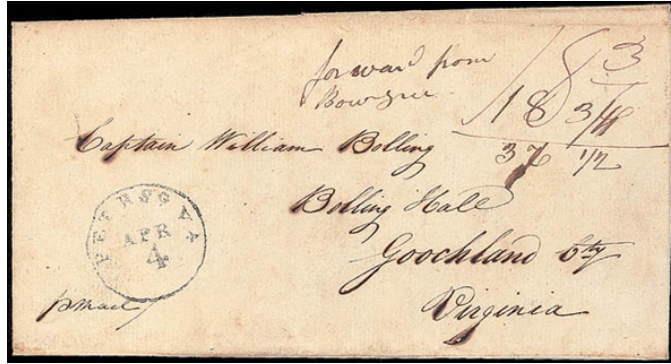 forward from
18 3
18 3/4
37 1/2
Captain William Bolling
Bolling Hall
Goochland Cty
Virginia
PETRSG VA
APR
4
p Mail